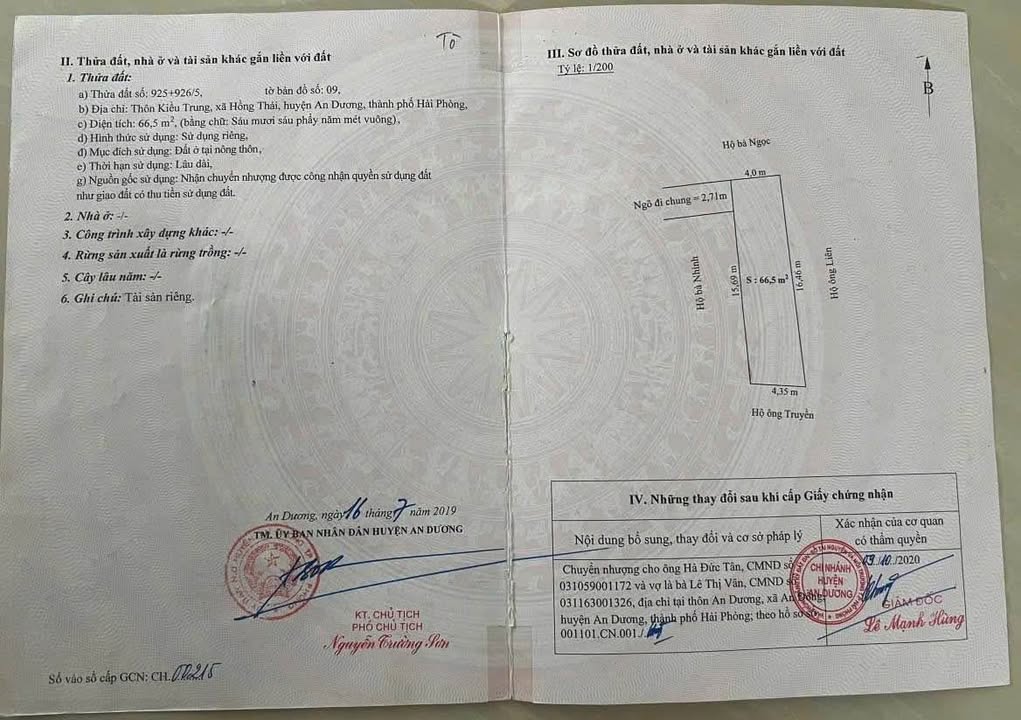 Tờ
II. Thửa đất, nhà ở và tài sản khác gắn liền với đất
1. Thửa đất:
a) Thửa đất số: 925+926/5, tờ bản đồ số: 09,
b) Địa chỉ: Thôn Kiều Trung, xã Hồng Thái, huyện An Dương, thành phố Hải Phòng,
c) Diện tích: 66,5 m², (bằng chữ: Sáu mươi sáu phẩy năm mét vuông),
d) Hình thức sử dụng: Sử dụng riêng,
đ) Mục đích sử dụng: Đất ở tại nông thôn,
e) Thời hạn sử dụng: Lâu dài,
g) Nguồn gốc sử dụng: Nhận chuyển nhượng được công nhận quyền sử dụng đất
như giao đất có thu tiền sử dụng đất.
2. Nhà ở: -/-
3. Công trình xây dựng khác: -/-
4. Rừng sản xuất là rừng trồng: -/-
5. Cây lâu năm: -/-
6. Ghi chú: Tài sản riêng.
An Dương, ngày 16 tháng 7 năm 2019
TM. ỦY BAN NHÂN DÂN HUYỆN AN DƯƠNG
KT. CHỦ TỊCH
PHÓ CHỦ TỊCH
Nguyễn Trường Sơn
Số vào sổ cấp GCN: CH.00215
III. Sơ đồ thửa đất, nhà ở và tài sản khác gắn liền với đất
Tỷ lệ: 1/200
B
Hộ bà Ngọc
4,0 m
Ngõ đi chung = 2,71m
Hộ bà Nhinh
15,69 m
S : 66,5 m²
16,46 m
Hộ ông Liên
4,35 m
Hộ ông Truyền
IV. Những thay đổi sau khi cấp Giấy chứng nhận
Nội dung bổ sung, thay đổi và cơ sở pháp lý
Xác nhận của cơ quan
có thẩm quyền
Chuyển nhượng cho ông Hà Đức Tân, CMND số
031059001172 và vợ là bà Lê Thị Vân, CMND số
031163001326, địa chỉ tại thôn An Dương, xã An Đồng,
huyện An Dương, thành phố Hải Phòng; theo hồ sơ số
001101.CN.001./.
09/10/2020
CHI NHÁNH
HUYỆN
AN DƯƠNG
GIÁM ĐỐC
Lê Mạnh Hùng